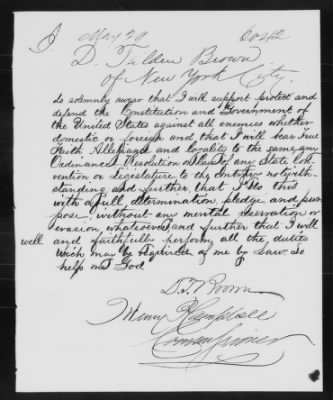 I May 20 6042
D. Tilden Brown
of New York
City.
do solemney swear that I will support protect and
defend the Constitution and Government of
the United States against all enemies whether
domestic or foreign and that I will bear True
Faith Allegiance and loyalty to the same, any
Ordinance Resolution or Law of any State Con-
vention or Legislature to the Contrary notwith-
standing and further, that I do this
with a full determination, pledge and pur
pose, without any mental reservation or
evasion, whatsoever, and further that I will
well and faithfully perform all the duties
which may be required of me by Law. So
help me God
D. T. Brown
Henry R Campbell
Commissioner